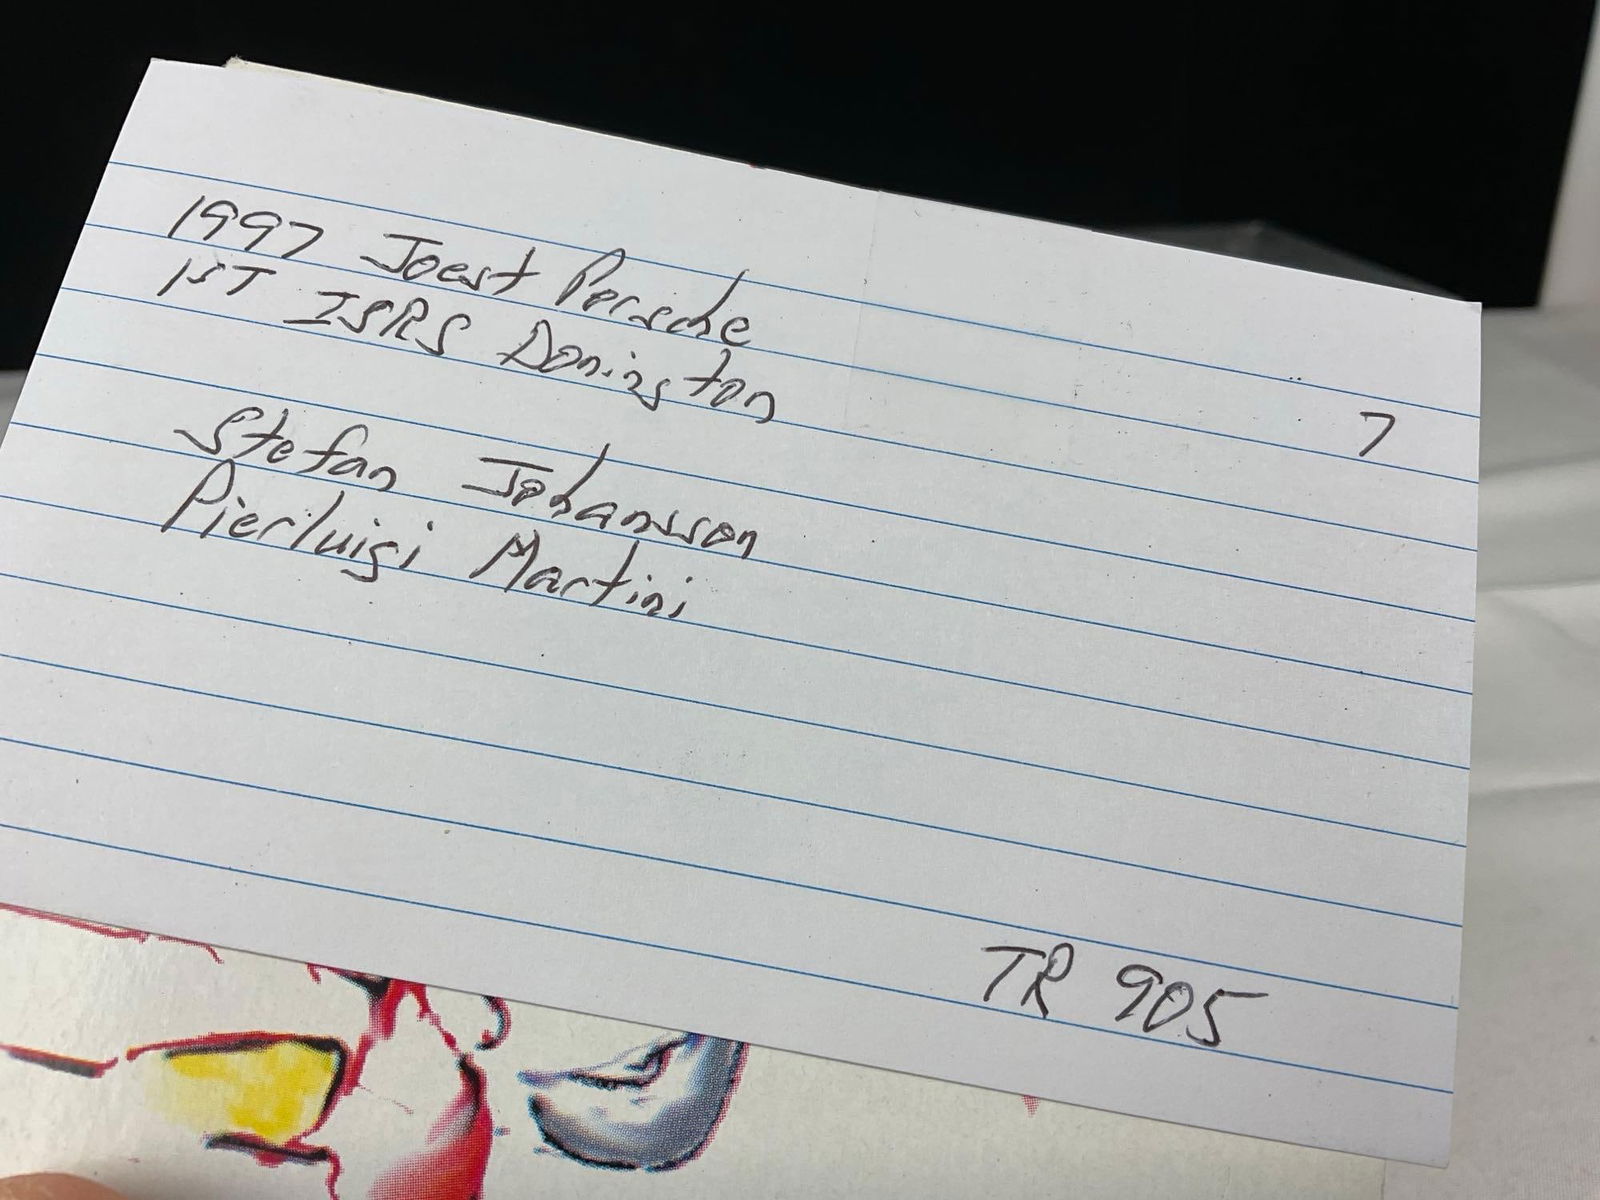 1997 Joest Porsche
1ST ISRS Donington
7
Stefan Johansson
Pierluigi Martini
TR 905